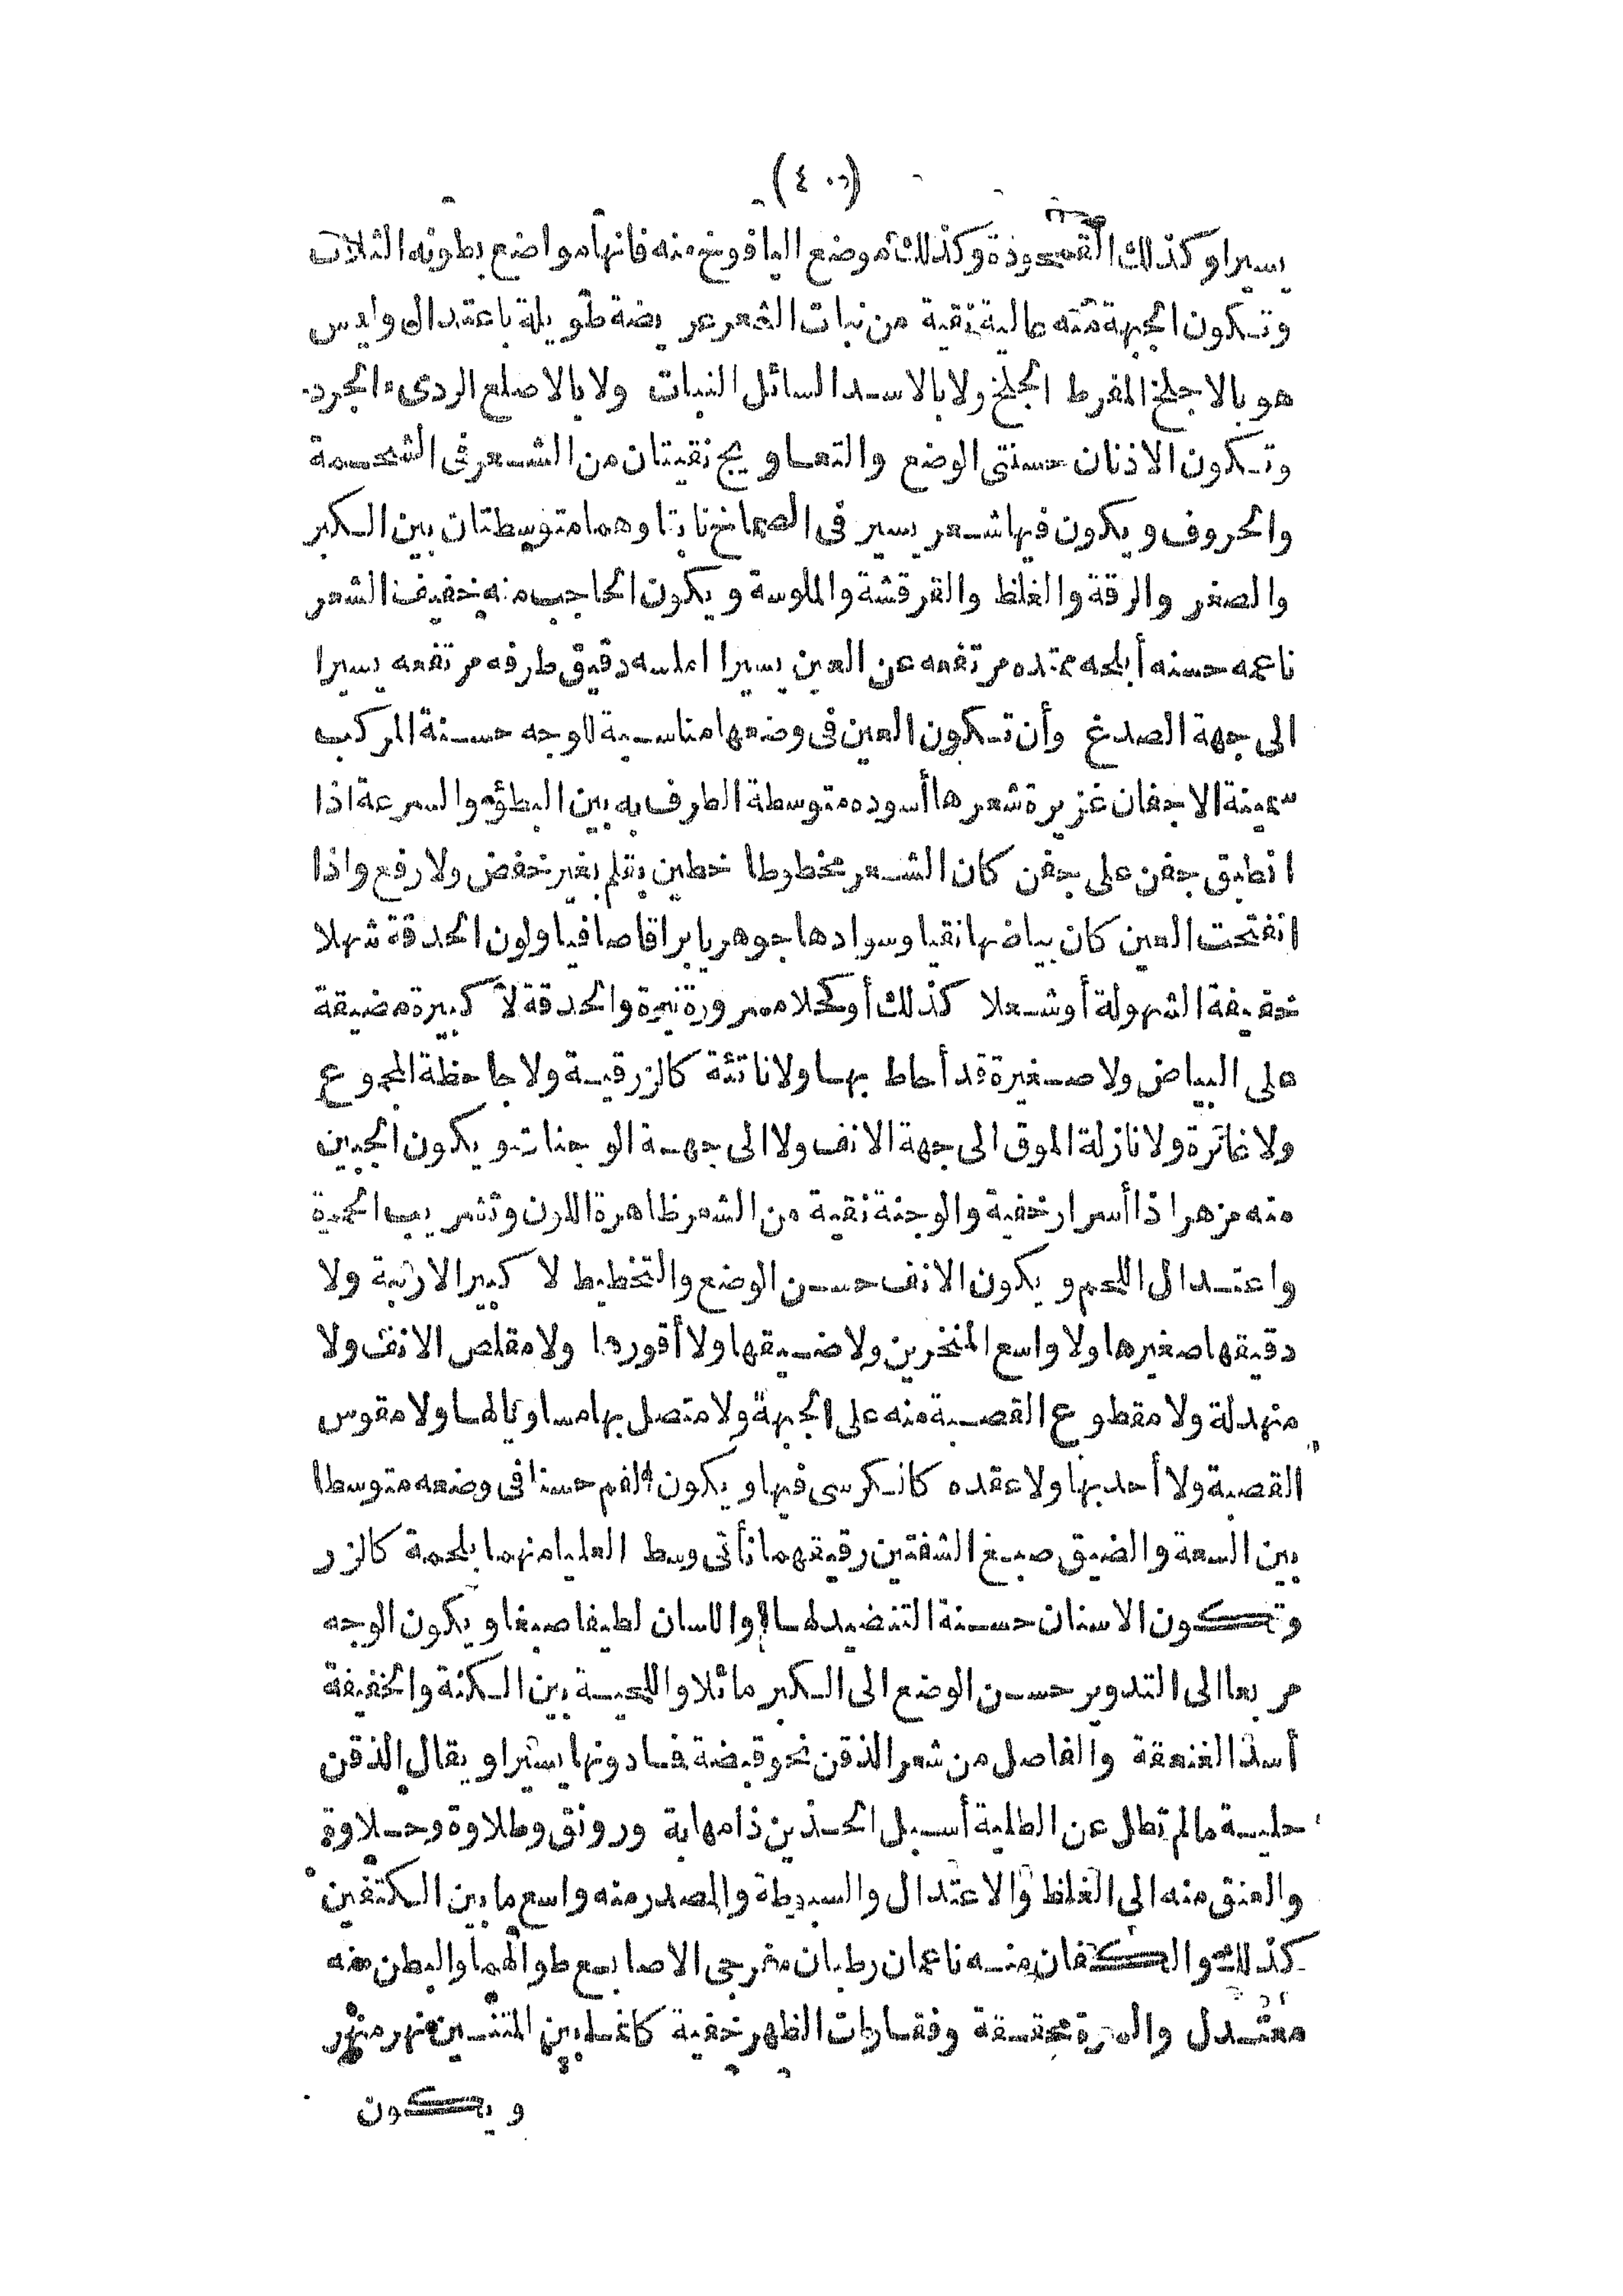 (٤٠)
يسيرا وكذلك القمحودة وكذلك موضع اليافوخ منه فانها مواضع بطونه الثلاث
وتكون الجبهة منه عالية نقية من نبات الشعر عريضة طويلة باعتدال وليس
هو بالاجلخ المفرط الجلخ ولا بالاسد السائل النبات ولا بالاصلع الردىء الجرد
وتكون الاذنان حسنتى الوضع والتعاويج نقيتان من الشعر فى الشحمة
والحروف ويكون فيها شعر يسير فى الصماخ نابتا وهما متوسطتان بين الكبر
والصغر والرقة والغلظ والقرقشة والملوسة ويكون الحاجب منه خفيف الشعر
ناعمه حسنه أبلجه ممتده مرتفعه عن العين يسيرا املسه دقيق طرفه مرتفعه يسيرا
الى جهة الصدغ وأن تكون العين فى وضعها مناسبة للوجه حسنة المركب
سمينة الاجفان غزيرة شعرها أسوده متوسطة الطرف به بين البطؤ والسرعة اذا
انطبق جفن على جفن كان الشعر مخطوطا خطين بقلم بغير خفض ولا رفع واذا
انفتحت العين كان بياضها نقيا وسوادها جوهريا براقا صافيا ولون الحدقة شهلا
خفيفة الشهولة أو شعلا كذلك أو كحلا مسرورة نيرة والحدقة لا كبيرة مضيقة
على البياض ولا صغيرة قد أحاط بها ولا ناتئة كالزرقية ولا جاحظة المجموع
ولا غائرة ولا نازلة الموق الى جهة الانف ولا الى جهة الوجنات ويكون الجبين
منه مزهرا ذا أسرار خفية والوجنة نقية من الشعر ظاهرة اللون وتشريب الحمرة
واعتدال اللحم ويكون الانف حسن الوضع والتخطيط لا كبير الارنبة ولا
دقيقها صغيرها ولا واسع المنخرين ولا ضيقها ولا أقوردا ولا مقلص الانف ولا
منهدلة ولا مقطوع القصبة منه على الجبهة ولا متصل بها مساويا لها ولا مقوس
القصبة ولا أحدبها ولا عقده كالكرسى فيها ويكون الفم حسنا فى وضعه متوسطا
بين السعة والضيق صبغ الشفتين رقيقهما ناتى وسط العليا منهما بلحمة كالزر
وتكون الاسنان حسنة التنضيد لها واللسان لطيفا صبغا ويكون الوجه
مربعا الى التدوير حسن الوضع الى الكبر مائلا واللحية بين الكثة والخفيفة
أسد العنعقة والفاصل من شعر الذقن نحو قبضة فما دونها يسيرا ويقال الذقن
حلية مالم تطل عن الطلية أسيل الخدين ذا مهابة ورونق وطلاوة وحلاوة
والعنق منه الى الغلظ والاعتدال والسبوطة والصدر منه واسع ما بين الكتفين
كذلك والكفان منه ناعمان رطبان منفرجى الاصابع طوالهما والبطن منه
معتدل والسرة محققة وفقارات الظهر خفية كاغلبين المتنين نهر منهر
ويكون